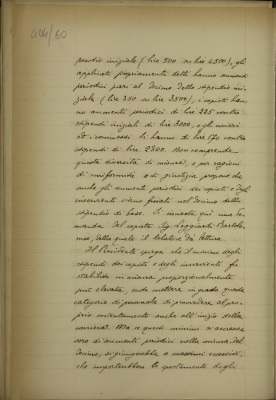 404/60
pendio iniziale (lire 500 su lire 4500), gli
applicati propriamente detti hanno aumenti
periodici pari al decimo dello stipendio ini-
ziale (lire 350 su lire 3500), i copisti han-
no aumenti periodici di lire 225 contro
stipendi iniziali di lire 3000, e gli uscieri
ed i comessi li hanno di lire 170 contro
stipendi di lire 2800. Non comprende
questa diversità di misura, e per ragioni
di uniformità e di giustizia propone che
anche gli aumenti periodici dei copisti e degli
inservienti siano fissati nel decimo dello
stipendio di base. Si associa qui una do-
manda del copista Sig. Leggiardi Bartolo-
meo, della quale il Relatore dà lettura.
Il Presidente spiega che il minimo degli
stipendi dei copisti e degli inservienti fu
stabilito in misura proporzionalmente
più elevata, onde mettere in grado queste
categorie di personale di provvedere al pro-
prio sostentamento anche all'inizio della
carriera. Ma se questi minimi si accresces-
sero di aumenti periodici nella misura del
decimo, si giungerebbe a massimi eccessivi,
che importerebbero lo spostamento degli